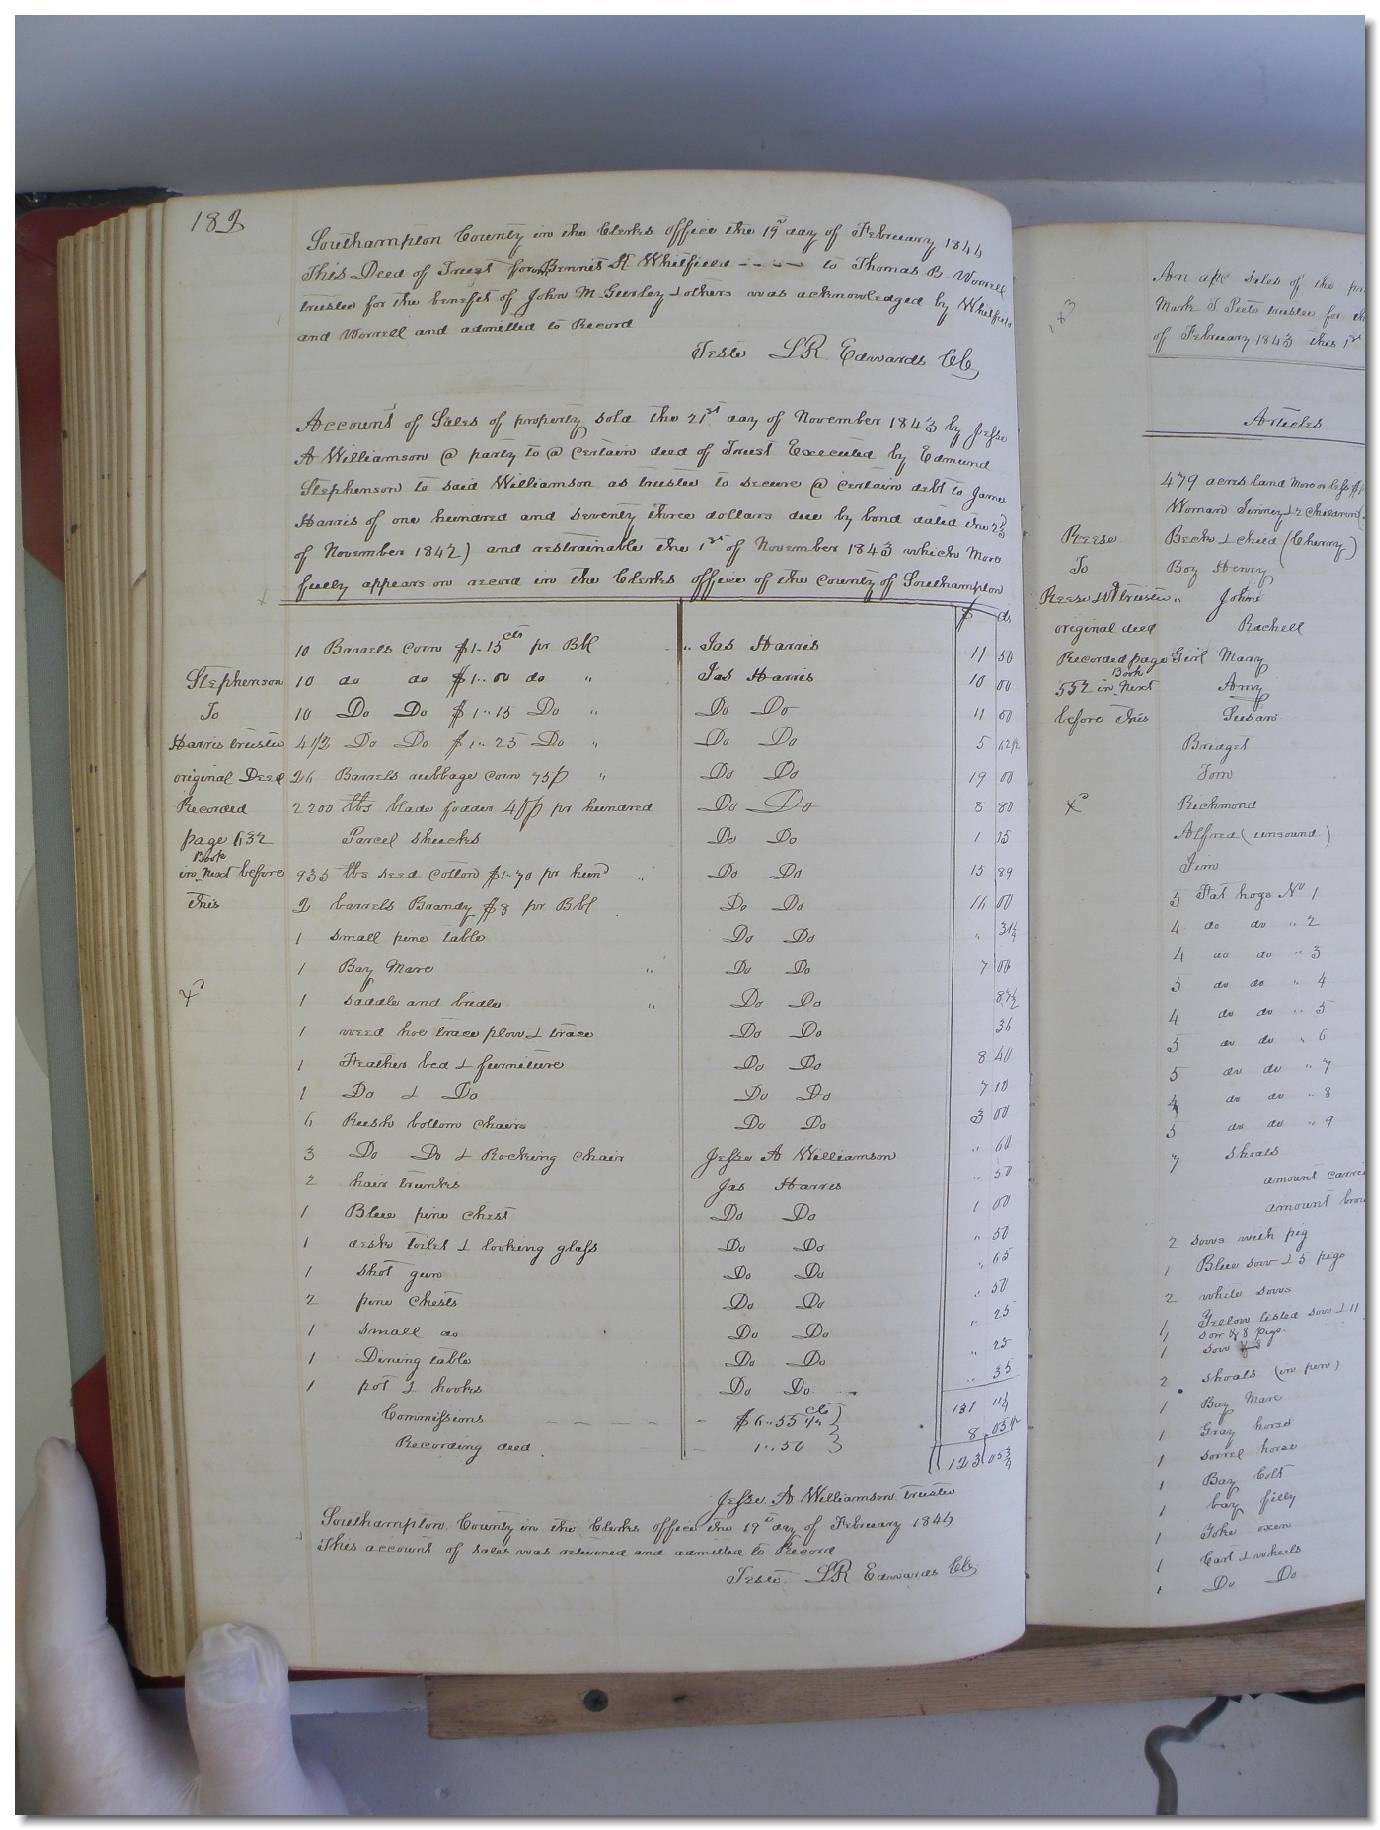 182
Southampton County in the Clerks office the 19th day of February 1844
This Deed of Trust from Bennit H Whitfield ---- to Thomas B Worrell
trustee for the benefit of John M Gurley & others was acknowledged by Whitfield
and Worrell and admitted to Record
Teste LR Edwards Clk
Account of Sales of property sold the 21st day of November 1843 by Jesse
A Williamson @ party to @ certain deed of Trust Executed by Edmund
Stephenson to said Williamson as trustee to secure @ certain debt to James
Harris of one hundred and seventy three dollars due by bond dated the
of November 1842) and restrainable the 1st of November 1843 which more
fully appears on record in the Clerks office of the County of Southampton
$ cts
10 Barrels corn $1.15 cts pr Bbl " Jas Harris 11 50
Stephenson 10 do do $1..00 do " Jas Harris 10 00
To 10 Do Do $1..15 Do " Do Do 11 00
Harris trustee 4 1/2 Do Do $1..25 Do " Do Do 5 62 1/2
original Deed 26 Barrels nubbage corn 75 " Do Do 19 00
Recorded 2200 lbs blade fodder pr hundred Do Do 8 80
page 632 Parcel shucks Do Do 1 15
Book
in Next before 935 lbs seed cotton $1.70 pr hund " Do Do 15 89
this 2 barrels Brandy $8 pr Bbl Do Do 16 00
1 small pine table Do Do " 31 1/4
1 Bay Mare " Do Do 7 00
1 saddle and bridle " Do Do 87 1/2
1 weed hoe trace plow & Do Do 36
1 Feather bed & furniture Do Do 8 40
1 Do & Do Do Do 7 10
6 Rush bottom chairs Do Do 3 00
3 Do Do & Rocking chair Jesse A Williamson " 60
2 hair trunks Jas Harris " 50
1 Blue pine chest Do Do 1 00
1 desk toilet & looking glass Do Do " 50
1 shot gun Do Do " 65
2 pine chests Do Do " 50
1 small do Do Do " 25
1 Dining table Do Do " 25
1 pot & hooks Do Do " 35
131 11 1/4
Commissions ---- $6..55 1/2 cts }
8.05 1/2
Recording deed 1..50 }
123 05 3/4
Jesse A Williamson trustee
Southampton County in the Clerks office the 19th day of February 1844
This account of sales was returned and admitted to Record
Teste LR Edwards Clk
183
An a/c sales of the
Mark S Peete trustee for
of February 1843 this 1st
Articles
479 acres land more or less
Woman Jinney & 2 children
Reese Beck & child (Cherry)
To Boy Henry
Reese trustee " John
original deed Rachell
Recorded page Girl Mary
Book
552 in Next Amy
before this Susan
Bridget
Tom
Richmond
Alfred (unsound)
Jim
5 Fat hogs No 1
4 do do " 2
4 do do " 3
5 do do " 4
4 do do " 5
5 do do " 6
5 do do " 7
4 do do " 8
5 do do " 9
7 Shoats
amount
amount
2 sows with pig
1 Blue sow & 5 pigs
2 white sows
1 Yellow listed sow & 11
1 sow & 8 pigs.
1 sow
2 shoats (in pen)
1 Bay Mare
1 Gray horse
1 sorrel horse
1 Bay Colt
1 bay filly
1 Yoke oxen
1 Cart & wheels
1 Do Do